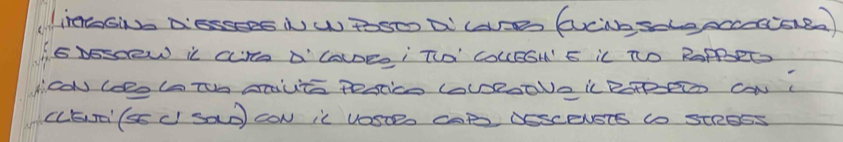 IMMAGINA D'ESSERE IN UN POSTO DI LAVORO (CUCINA, SALA, ACCOGLIENZA)
E DESCRIVI IL CLIMA DI LAVORO, I TUOI COLLEGHI E IL TUO RAPPORTO
CON LORO LA TUA ATTIVITÀ PRATICA LAVORATIVA IL RAPPORTO CON I
CLIENTI (SE CI SONO) CON IL VOSTRO CAPO DESCRIVETE LO STRESS